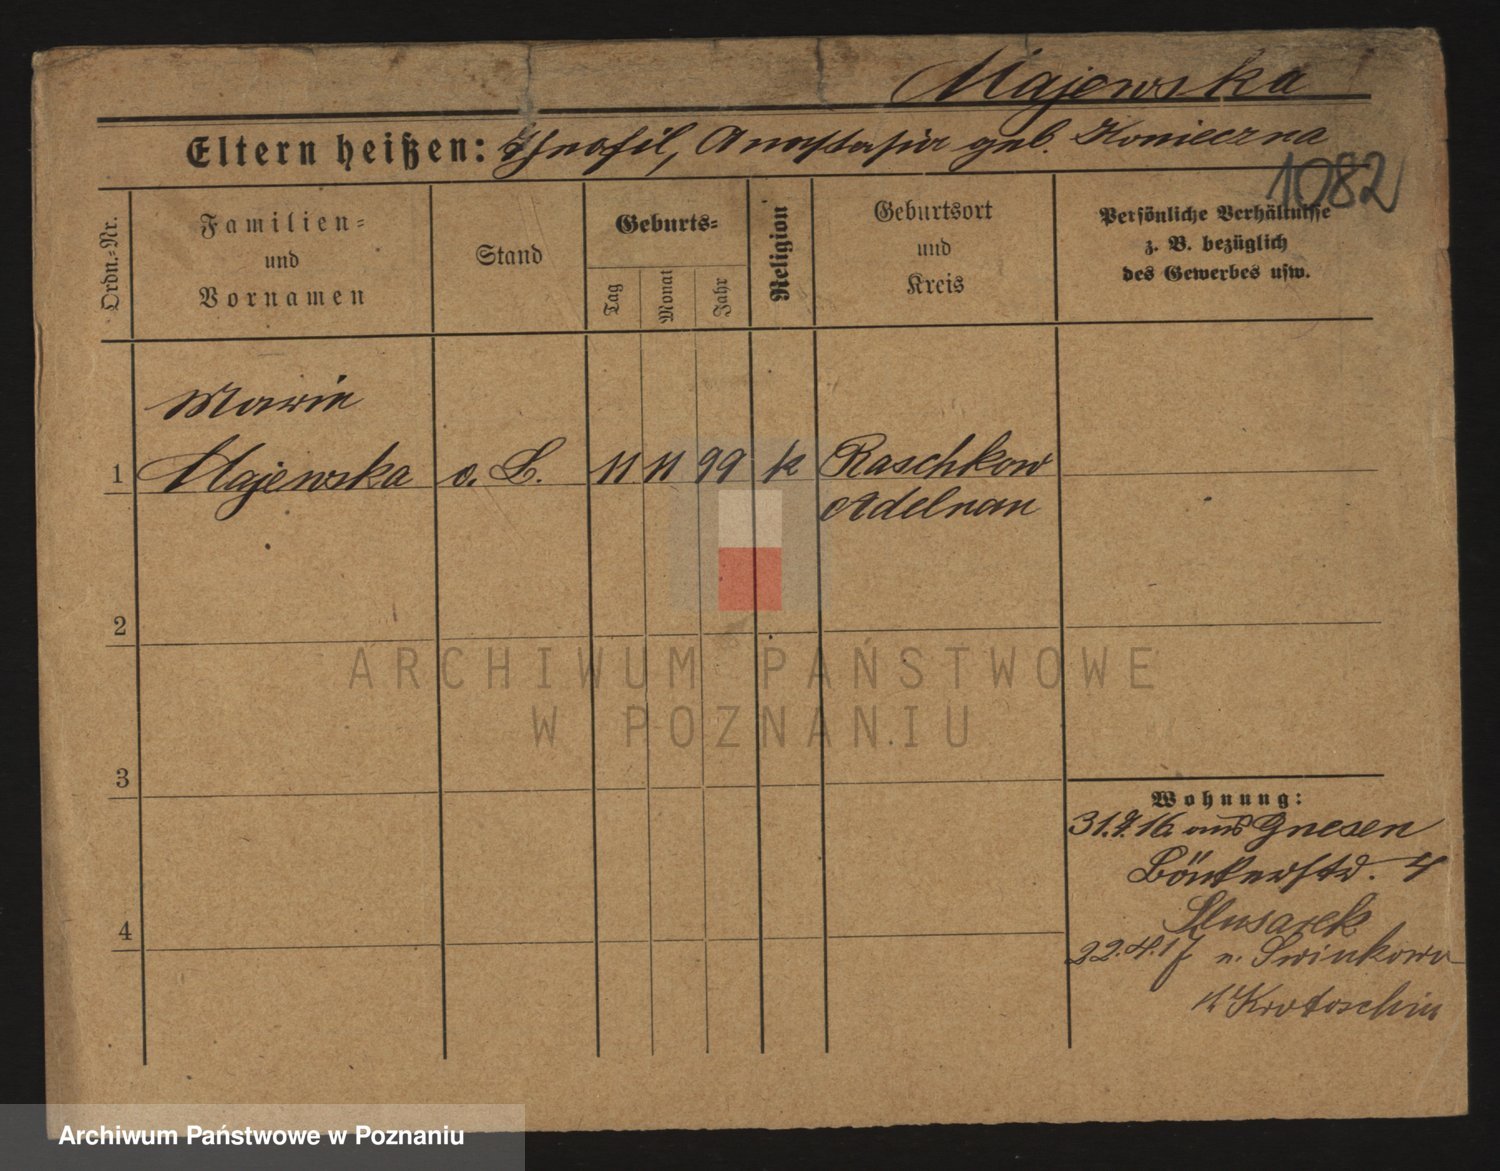 Majewska
Eltern heißen: Theofil, Anastasia geb. Konieczna
1082
Ordn.-Nr.
Familien-
und
Vornamen
Stand
Geburts-
Tag
Monat
Jahr
Religion
Geburtsort
und
Kreis
Persönliche Verhältnisse
z. B. bezüglich
des Gewerbes usw.
Marie
1 Majewska o. B. 11 11 99 k Raschkow
Adelnau
2
3
4
Wohnung:
aus Gnesen
4
Slusarek
22.4.17 n. Swinkowo
Krotoschin
ARCHIWUM PAŃSTWOWE
W POZNANIU
Archiwum Państwowe w Poznaniu